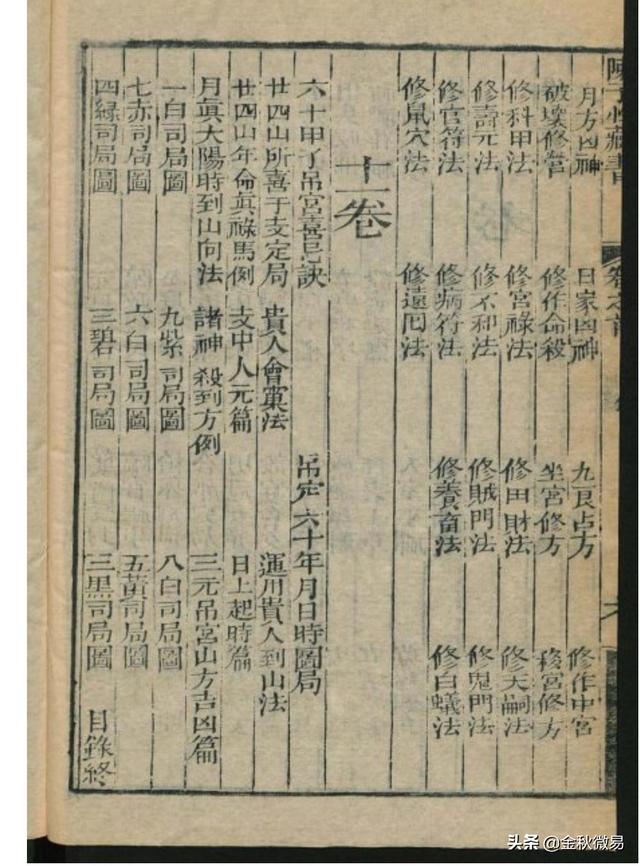 陳子性藏書 卷之首
月方凶神 日家凶神 九良占方 修作中宮
破壞修營 修作命殺 坐宮修方 移宮修方
修科甲法 修宮祿法 修田財法 修天嗣法
修壽元法 修不和法 修賊門法 修鬼門法
修官符法 修病符法 修養畜法 修白蟻法
修鼠穴法 修遠囘法
十一卷
六十甲子吊宮喜忌訣 吊定六十年月日時圖局
廿四山所喜于支定局 貴人會藁法 運用貴人到山法
廿四山年命眞祿馬例 支中人元篇 日上起時篇
月眞太陽時到山向法 諸神殺到方例 三元吊宮山方吉凶篇
一白司局圖 九紫司局圖 八白司局圖
七赤司局圖 六白司局圖 五黃司局圖
四緑司局圖 三碧司局圖 三黑司局圖 目錄終
头条 @金秋微易